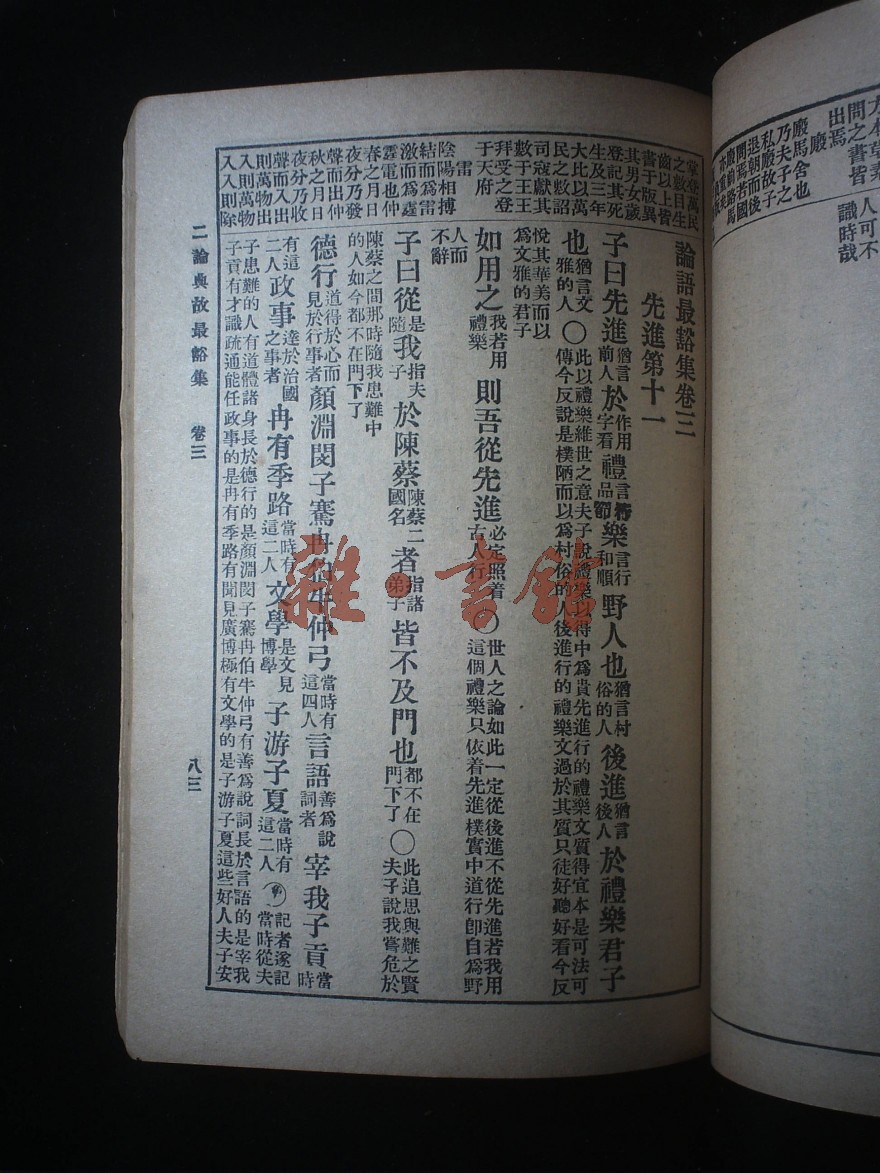 問之書皆
出焉
廄
廄馬舍也
乃夫子之
私廄故子
退朝而後
問焉若國
人可不
識時哉
掌登萬民
之數目生
齒以上皆
書于版異
其男女歲
登記其死
生及三年
大比以萬
民之數詔
司寇獻其
數于王王
拜受之登
于天府
雷
陰陽相搏
結而為雷
激而為霆
霆電也仲
春之月日
夜分乃發
聲而出仲
秋之月日
夜分乃收
聲而入出
則萬物出
入則萬物
入入則除
論語最豁集卷三
先進第十一
子曰先進猶言前人於作用字看禮言行品節樂言行和順野人也猶言村俗的人後進猶言後人於禮樂君子
也猶言文雅的人〇此以禮樂維世之意夫子說禮樂以得中為貴先進行的禮樂文質得宜本是可法可傳今反說是樸陋而以為村俗的人後進行的禮樂文過於其質只徒好聽好看今反
悅其華美而以為文雅的君子
如用之我若用禮樂則吾從先進必定照着古人行〇世人之論如此一定從後進不從先進若我用這個禮樂只依着先進樸實中道行卽自為野
人而不辭
子曰從是隨我指夫子於陳蔡陳蔡二國名者指諸弟子皆不及門也都不在門下了〇此追思與難之賢夫子說我嘗危於
陳蔡之間那時隨我患難中的人如今都不在門下了
德行道得於心而見於行事者顏淵閔子騫冉伯牛仲弓當時有這四人言語善為說詞者宰我子貢當時
有這二人政事達於治國之事者冉有季路當時有這二人文學是文見博學子游子夏當時有這二人〇記者遂記當時從夫
子患難的人有道體諸身長於德行的是顏淵閔子騫冉伯牛仲弓有善為說詞長於言語的是宰我
子貢有才識疏通能任政事的是冉有季路有聞見廣博極有文學的是子游子夏這些好人夫子安
二論典故最豁集 卷三 八三
雜·書館